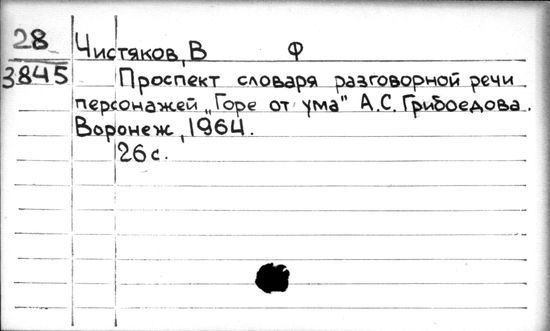 28 Чистяков, В Ф
3845 Проспект словаря разговорной речи
персонажей „Горе от ума" А.С. Грибоедова.
Воронеж, 1964.
26 с.